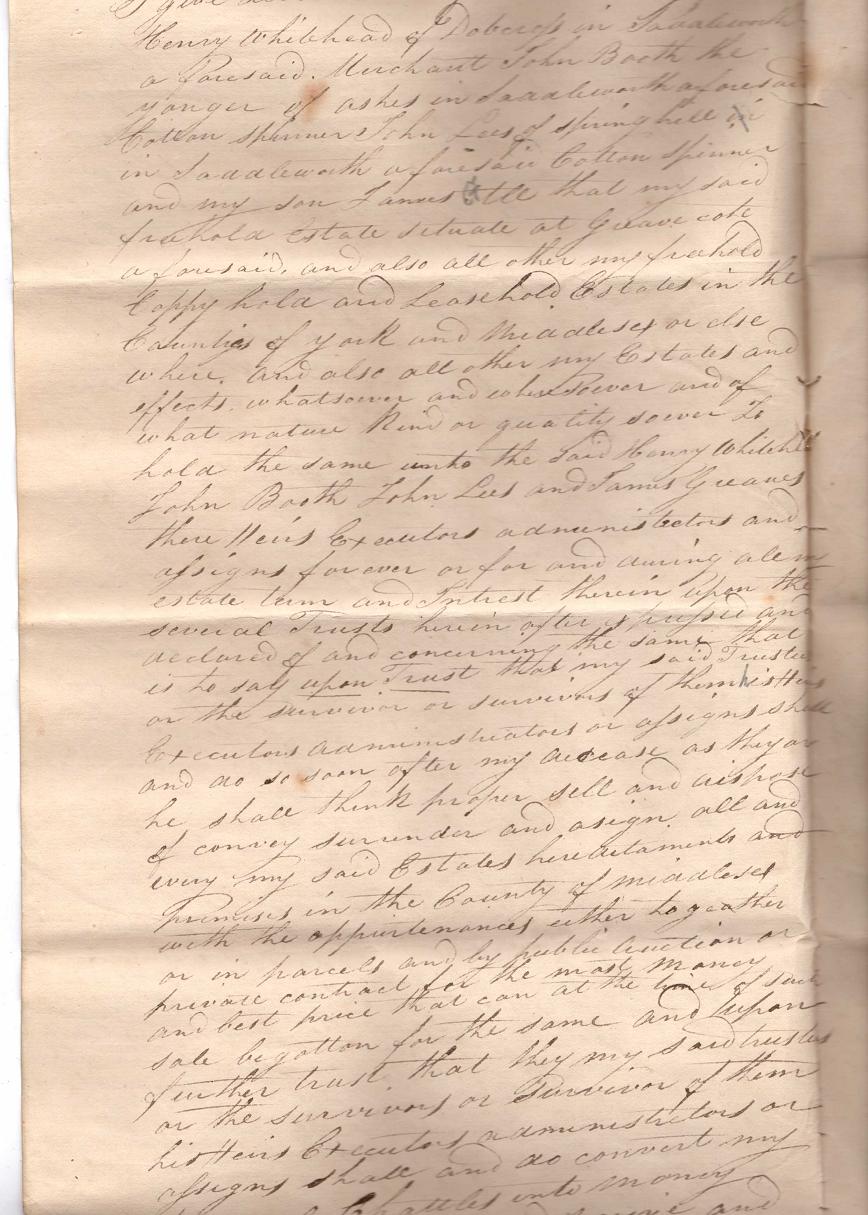 I give
Henry Whitehead of Dobcross in Saddleworth
a foresaid. Merchant John Booth the
yonger of ashes in Saddleworth aforesaid
Cotton spinner John Lees of spring hill in
in Saddleworth a foresaid Cotton Spinner
and my son James All that my said
freehold Estate situate at Greave cote
a foresaid, and also all other my freehold
Coppy hold and Leasehold Estates in the
Counties of york and Middlesex or else
where. and also all other my Estates and
effects. whatsoever and wheresoever and of
what nature Kind or quality soever To
hold the same unto the Said Henry Whitehead
John Booth John Lees and James Greaves
there Heirs Executors administectors and
assigns for ever or for and during all m
estate term and Intrest therein upon the
several Trusts herein after expressed and
declared of and concerning the same that
is to say upon Trust that my said Trustees
or the survivor or survivors of them his Heirs
Executors administrators or assigns shall
and do so soon after my decease as they or
he shall think proper sell and dispose
of convey surrender and asign all and
every my said Estates hereditaments and
Premises in the County of middlesex
with the appurtenances either to geather
or in parcels and by public Auction or
private contract for the most money
and best price that can at the time of such
sale be gotton for the same and Upon
further trust that they my said trustees
or the survivors or Survivor of them
his Heirs Executors administrators or
assigns shall and do convert my
Chattles into money
and